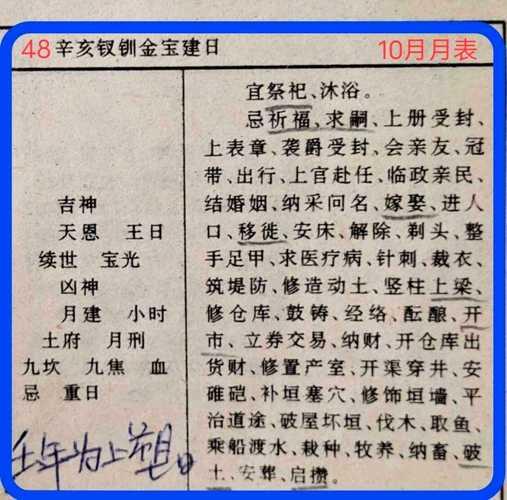 48 辛亥钗钏金宝建日 10月月表
宜祭祀、沐浴。
忌祈福、求嗣、上册受封、
上表章、袭爵受封、会亲友、冠
带、出行、上官赴任、临政亲民、
结婚姻、纳采问名、嫁娶、进人
口、移徙、安床、解除、剃头、整
手足甲、求医疗病、针刺、裁衣、
筑堤防、修造动土、竖柱上梁、
修仓库、鼓铸、经络、酝酿、开
市、立券交易、纳财、开仓库出
货财、修置产室、开渠穿井、安
碓硙、补垣塞穴、修饰垣墙、平
治道涂、破屋坏垣、伐木、取鱼、
乘船渡水、栽种、牧养、纳畜、破
土、安葬、启攒、
吉神
天恩 王日
续世 宝光
凶神
月建 小时
土府 月刑
九坎 九焦 血
忌 重日
年为上